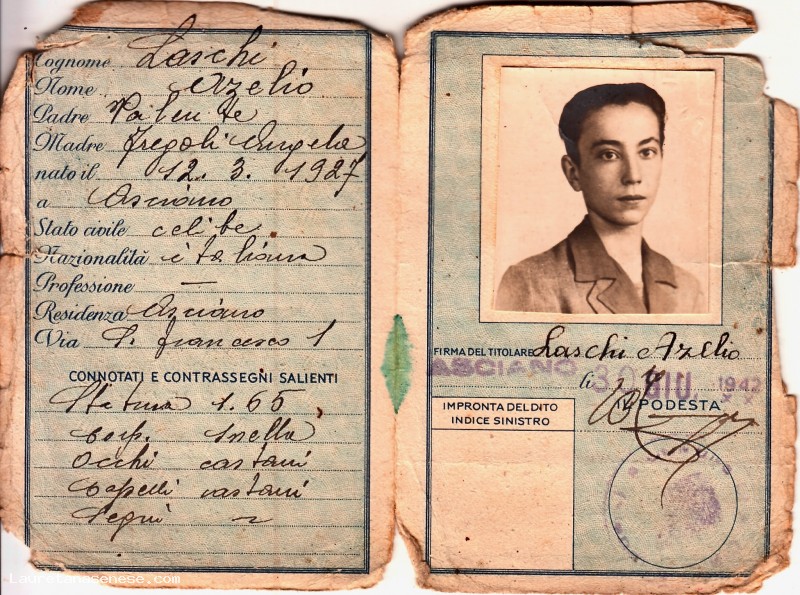 Cognome Laschi
Nome Azelio
Padre Valente
Madre Fregoli Angela
nato il 12. 3. 1927
a Asciano
Stato civile celibe
Nazionalità italiana
Professione —
Residenza Asciano
Via S. Francesco 1
CONNOTATI E CONTRASSEGNI SALIENTI
Statura 1.65
corp. snella
occhi castani
capelli castani
Segni ~
FIRMA DEL TITOLARE Laschi Azelio
ASCIANO li 30 GIU. 1942
IL PODESTA
IMPRONTA DEL DITO
INDICE SINISTRO
Lauretanasenese.com